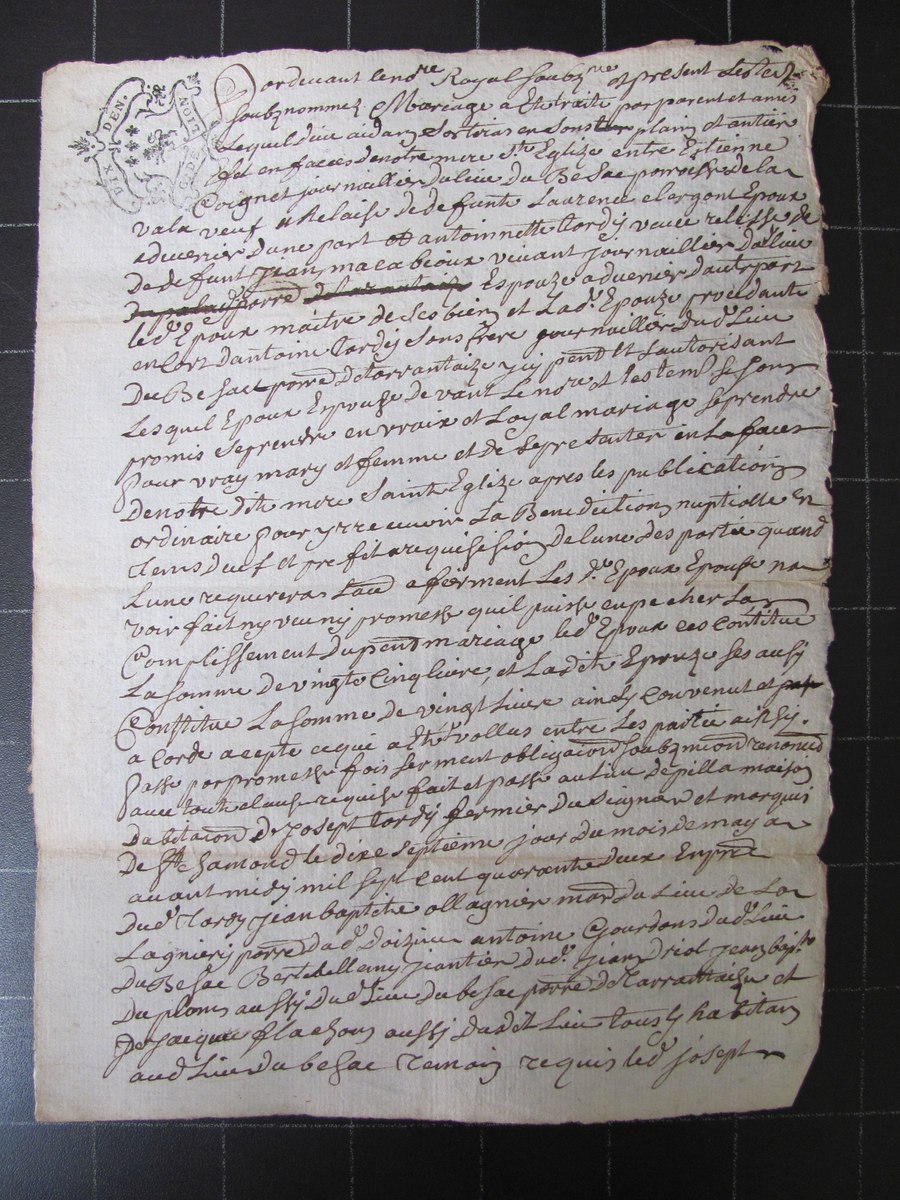 DIX DEN. G. DE LION
Pardevant le nore Royal soubzne et present les tes
soubznommez Mariage a Este traité par parent et amis
Lequel Dieu aidant Sortiras en Sons plain et antier
Efet en faces de notre mere Ste Eglize entre Estienne
Coignet journaillier du lieu du Besac parroisse de la
vala veuf a Relaise de defunte Laurence Largont Epoux
aduenier dune part et antoinnette tardÿ veuve relisse de
De defunt jean macabioux vivant journaillier dud Lieu
Espouze aduenier dautre part
led Epoux maitre de Ses bien et Lad Epouze procedante
en Lort dantoine tardÿ Sons frere journaillier dud Lieu
Du Besac parre de tarrantaize jcy pent et Lautorisant
Les quel Epoux Espouze de vant Le nore et les tem Se sont
promis Se prendre en vraix et Loyal mariage Se prendre
pour vray mary et femme et de Se presanter en La faces
De notre dite mere Sainte Eglize apres les publication
ordinaire pour y recevoir La Benediction nuptialle En
tems deuf et prefit a requisision de lune des partie quand
Lune requereras Laud aferment Les d Epoux Epouse na
voir fait ny veu ny promesse quil puisse enpecher La
Complissement du pent mariage led Epoux ces Contitue
La somme de vingte Cinq livre et Ladite Epouze Ses aussÿ
Constitue La somme de vingt Livre ainsy Convenut et
a Corde acepte ce qui a Ete vollus entre Les partie ainsÿ
passe par promesse fois Serment obligaon Soubzmion renond
avec toute Clause requise fait et passe au Lieu de pilla maison
Dabitaon de joseph tardÿ fermier du Seigneur et marquis
De St Chamond le dixe Septieme jour du mois de may a
auant midÿ mil Sept Cent quarante deux En pnce
Dud tardy jean baptite ollagnier mard du Lieu de La
Lagnierÿ parre dud doizieu antoine Gourdons dud Lieu
Du Besac Bertellemy jeantier dud jean driol jean bapte
Duplomb aussÿ dud Lieu du besac parre de tarrantaize et
De jacque flachons aussÿ dudit Lieu tous habitan
aud Lieu du besac temoin requis led joseph